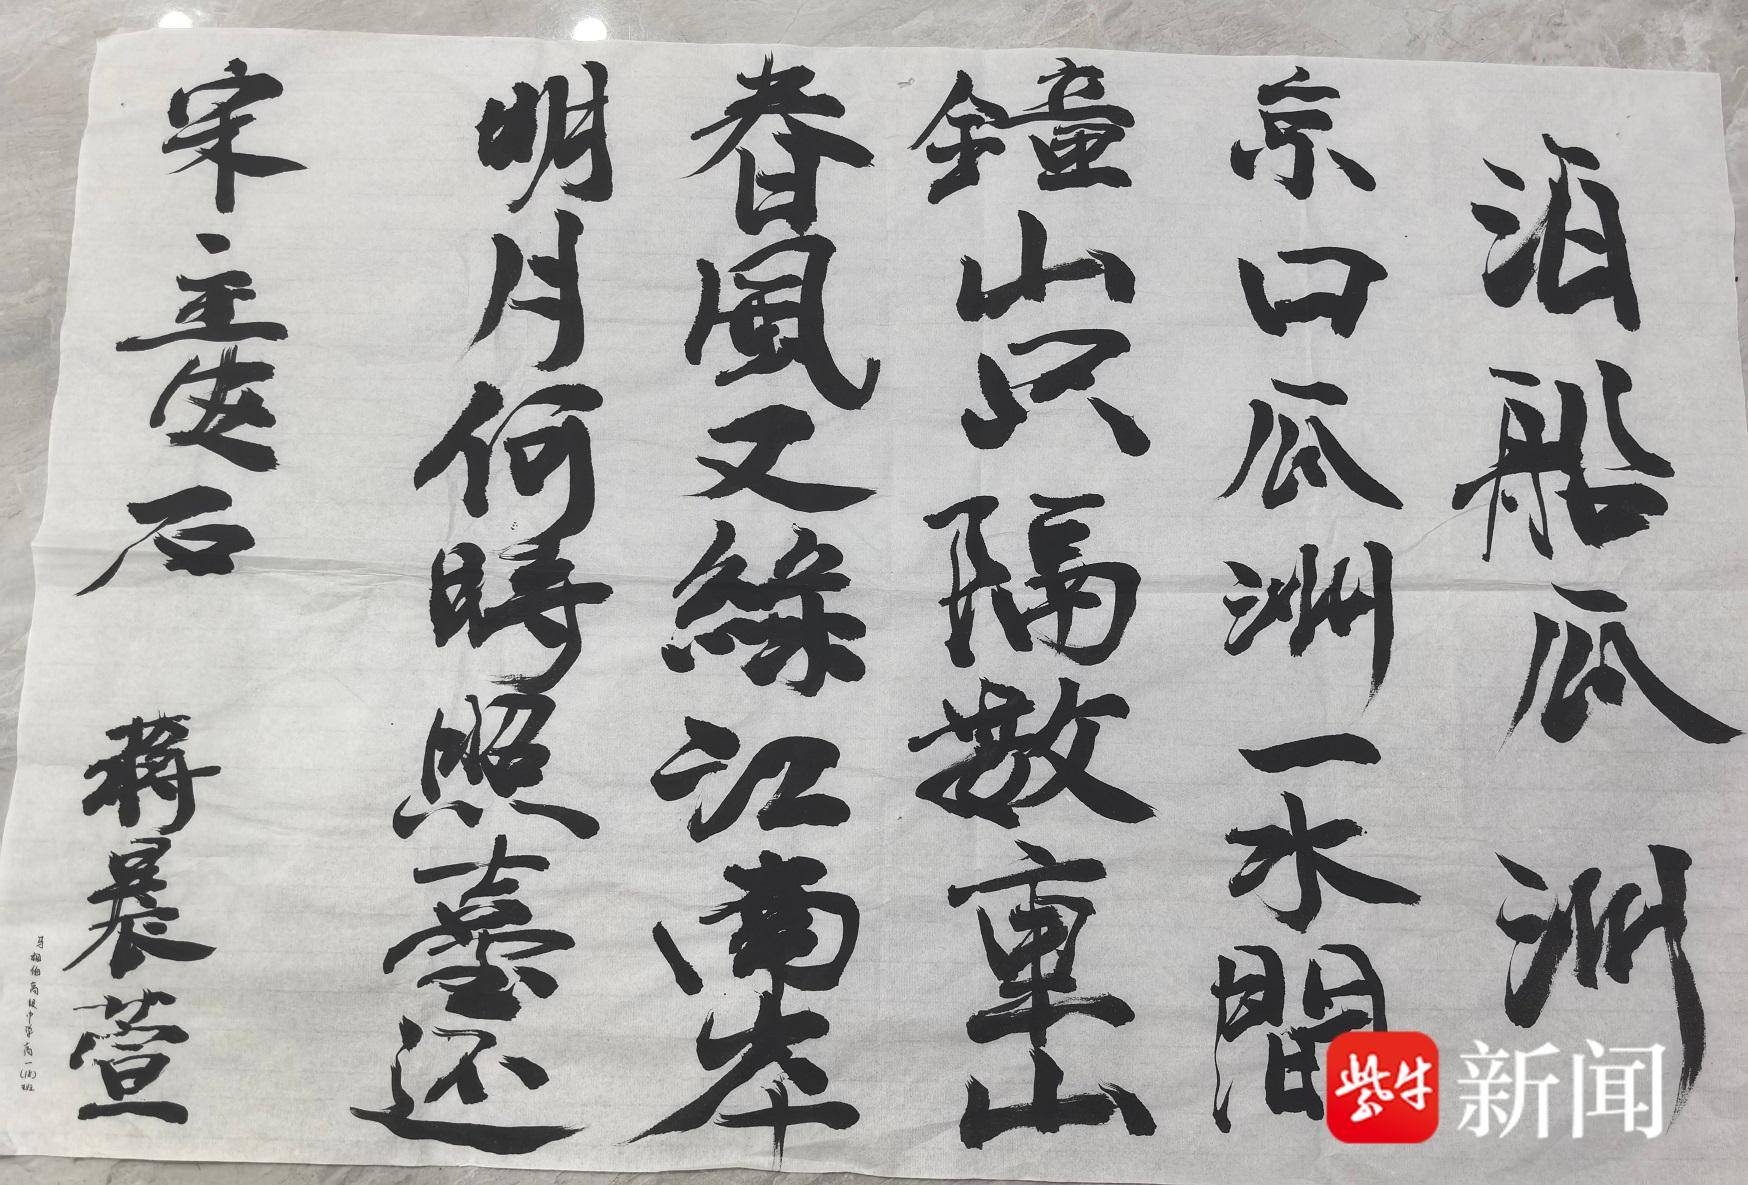 泊船瓜洲
京口瓜洲一水間
鐘山只隔數重山
春風又綠江南岸
明月何時照臺还
宋主安石 蒋晨萱
马相伯高级中学高一(18)班
紫牛新闻